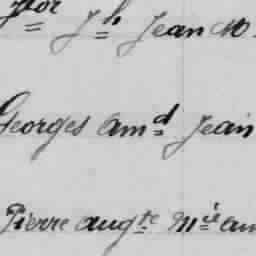 Jh Jean M
Georges amd Jean
Pierre augte Mie am